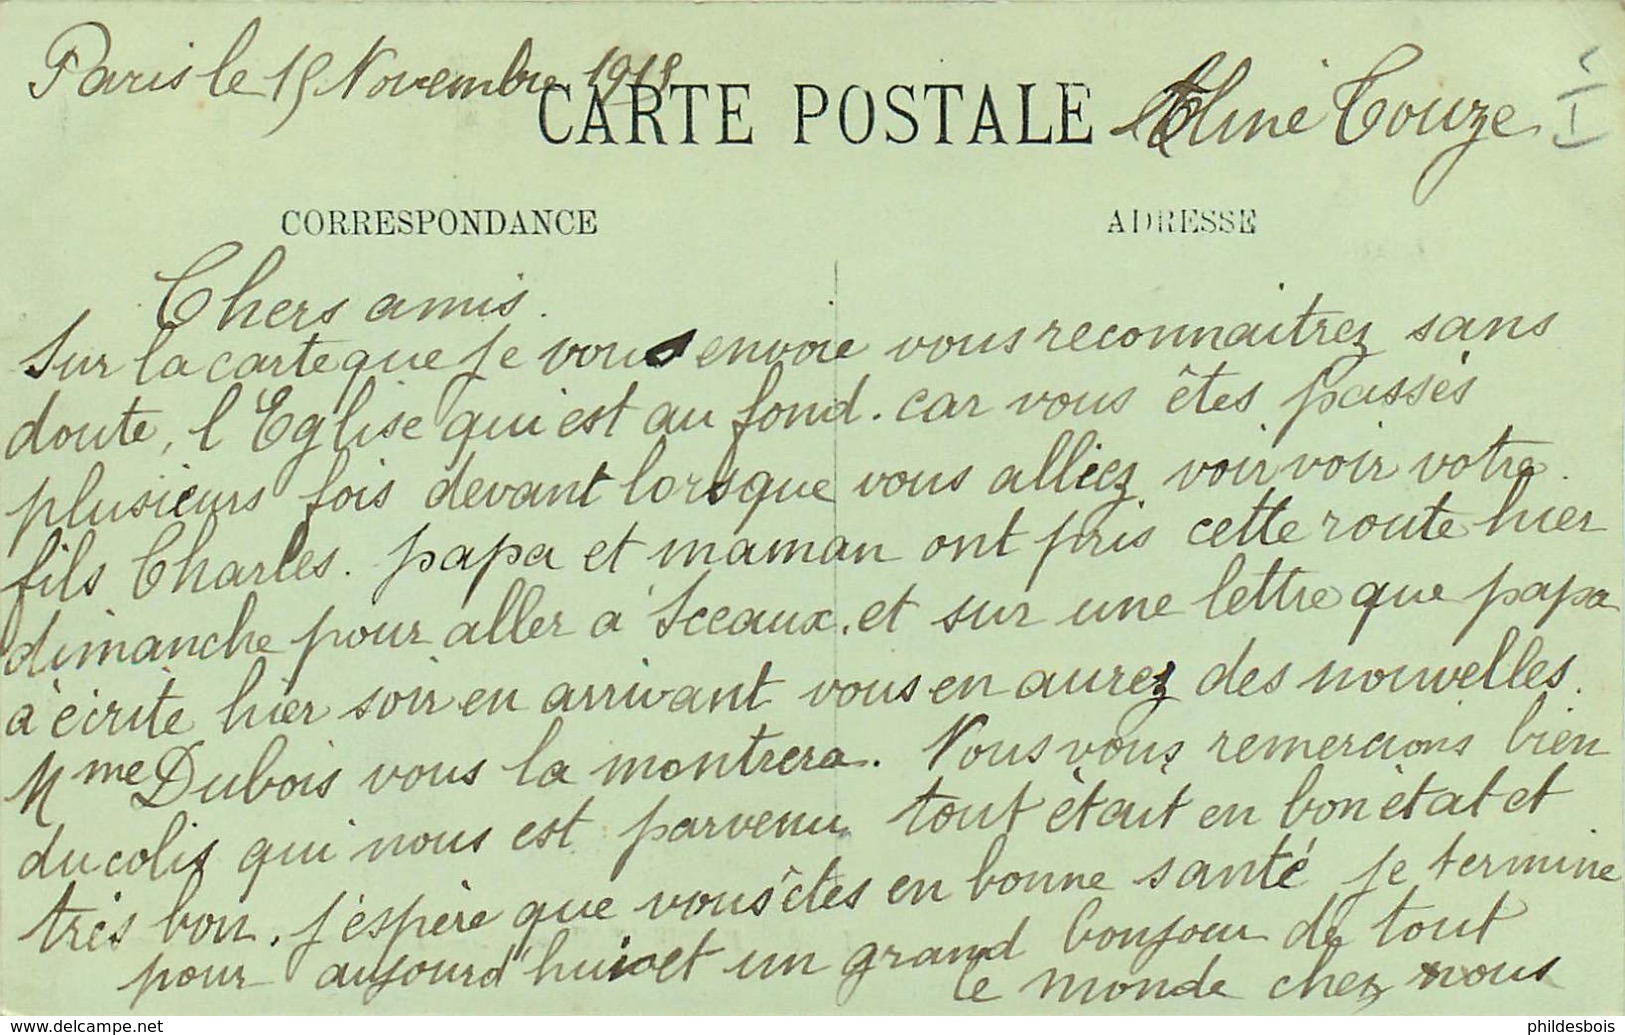 Paris le 15 Novembre 1915
CARTE POSTALE
Céline Touze
CORRESPONDANCE
ADRESSE
Chers amis.
Sur la carte que je vous envoie vous reconnaitrez sans
doute, l'Eglise qui est au fond. car vous êtes passés
plusieurs fois devant lorsque vous alliez voir voir votre
fils Charles. papa et maman ont pris cette route hier
dimanche pour aller a Sceaux. et sur une lettre que papa
à écrite hier soir en arrivant vous en aurez des nouvelles.
Mme Dubois vous la montrera. Nous vous remercions bien
du colis qui nous est parvenu tout était en bon état et
très bon. j'éspère que vous êtes en bonne santé je termine
pour aujourd'hui et un grand bonjour de tout
le monde chez nous
www.delcampe.net
phildesbois